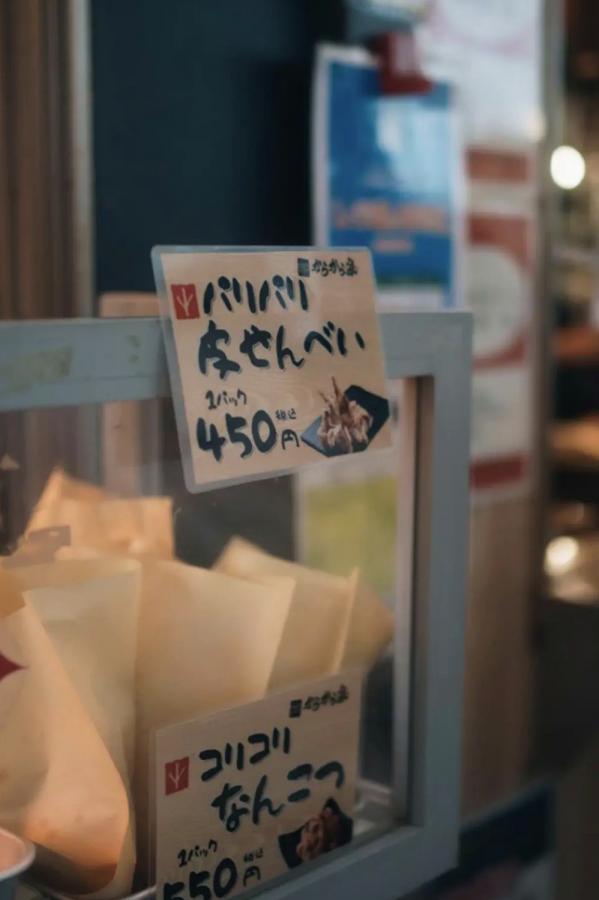 からから家
パリパリ
皮せんべい
1パック
450円
税込
からから家
コリコリ
なんこつ
1パック
550円
税込